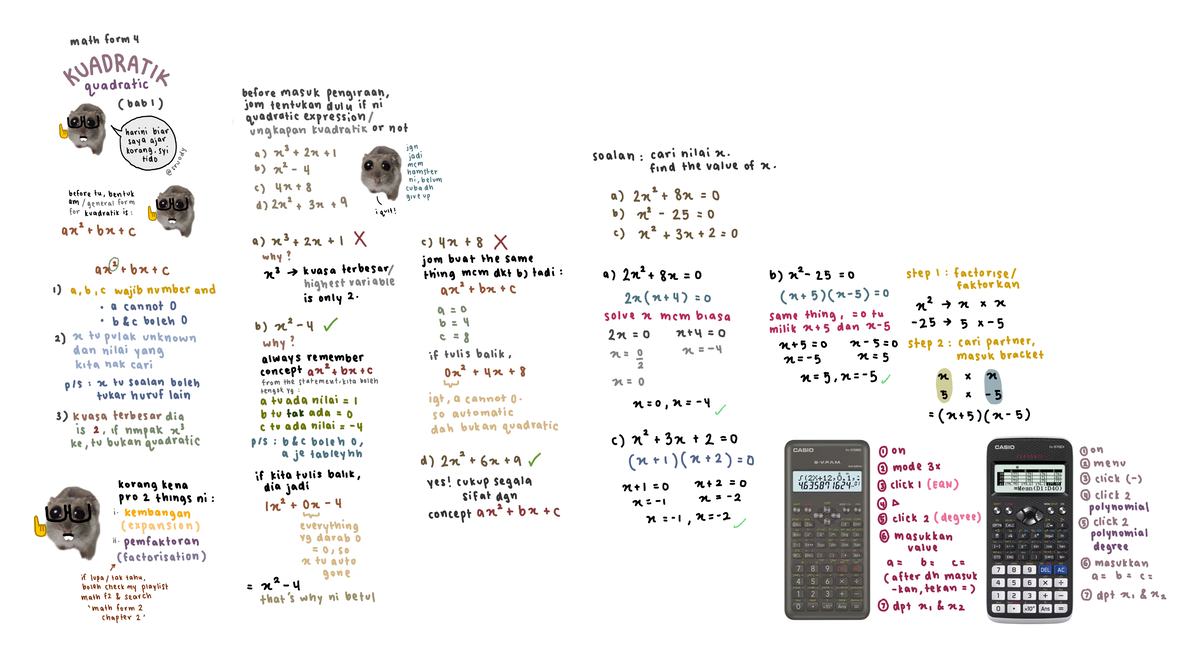 math form 4
KUADRATIK
quadratic
(bab 1)
harini biar
saya ajar
korang. syi
tido
@sruody
before tu, bentuk
am / general form
for kuadratik is :
ax² + bx + c
ax² + bx + c
1) a, b, c wajib number and
• a cannot 0
• b & c boleh 0
2) x tu pulak unknown
dan nilai yang
kita nak cari
p/s : x tu soalan boleh
tukar huruf lain
3) kuasa terbesar dia
is 2, if nmpak x³
ke, tu bukan quadratic
korang kena
pro 2 things ni :
i. kembangan
(expansion)
ii. pemfaktoran
(factorisation)
if lupa / tak tahu,
boleh check my playlist
math f2 & search
'math form 2
chapter 2'
before masuk pengiraan,
jom tentukan dulu if ni
quadratic expression /
ungkapan kuadratik or not
a) x³ + 2x + 1
b) x² - 4
c) 4x + 8
d) 2x² + 3x + 9
jgn
jadi
mcm
hamster
ni, belum
cuba dh
give up
i quit!
a) x³ + 2x + 1 X
why ?
x³ → kuasa terbesar/
highest variable
is only 2.
b) x² - 4 ✓
why ?
always remember
concept ax² + bx + c
from the statement, kita boleh
tengok yg :
a tu ada nilai = 1
b tu tak ada = 0
c tu ada nilai = -4
p/s : b & c boleh 0,
a je tableyhh
if kita tulis balik,
dia jadi
1x² + 0x - 4
everything
yg darab 0
= 0, so
x tu auto
gone
= x² - 4
that's why ni betul
c) 4x + 8 X
jom buat the same
thing mcm dkt b) tadi :
ax² + bx + c
a = 0
b = 4
c = 8
if tulis balik,
0x² + 4x + 8
igt, a cannot 0.
so automatic
dah bukan quadratic
d) 2x² + 6x + 9 ✓
yes! cukup segala
sifat dgn
concept ax² + bx + c
soalan : cari nilai x.
find the value of x.
a) 2x² + 8x = 0
b) x² - 25 = 0
c) x² + 3x + 2 = 0
a) 2x² + 8x = 0
2x(x+4) = 0
solve x mcm biasa
2x = 0 x+4 = 0
x = 0/2 x = -4
x = 0
x = 0, x = -4 ✓
c) x² + 3x + 2 = 0
(x+1)(x+2) = 0
x+1 = 0 x+2 = 0
x = -1 x = -2
x = -1, x = -2 ✓
b) x² - 25 = 0
(x+5)(x-5) = 0
same thing, =0 tu
milik x+5 dan x-5
x+5 = 0 x-5 = 0
x = -5 x = 5
x = 5, x = -5 ✓
step 1 : factorise/
faktorkan
x² → x × x
-25 → 5 × -5
step 2 : cari partner,
masuk bracket
x × x
5 × -5
= (x+5)(x-5)
CASIO
S-V.P.A.M.
4.635871624-01
7 8 9 DEL AC
4 5 6 × ÷
1 2 3 + -
0 • ×10ˣ Ans =
① on
② mode 3x
③ click 1 (EQN)
④ ▷
⑤ click 2 (degree)
⑥ masukkan
value
a = b = c =
(after dh masuk
-kan, tekan =)
⑦ dpt x₁ & x₂
CASIO
CLASSWIZ
=Mean(D1:D40)
7 8 9 DEL AC
4 5 6 × ÷
1 2 3 + -
0 • ×10ˣ Ans =
① on
② menu
③ click (-)
④ click 2
polynomial
⑤ click 2
polynomial
degree
⑥ masukkan
a = b = c =
⑦ dpt x₁ & x₂